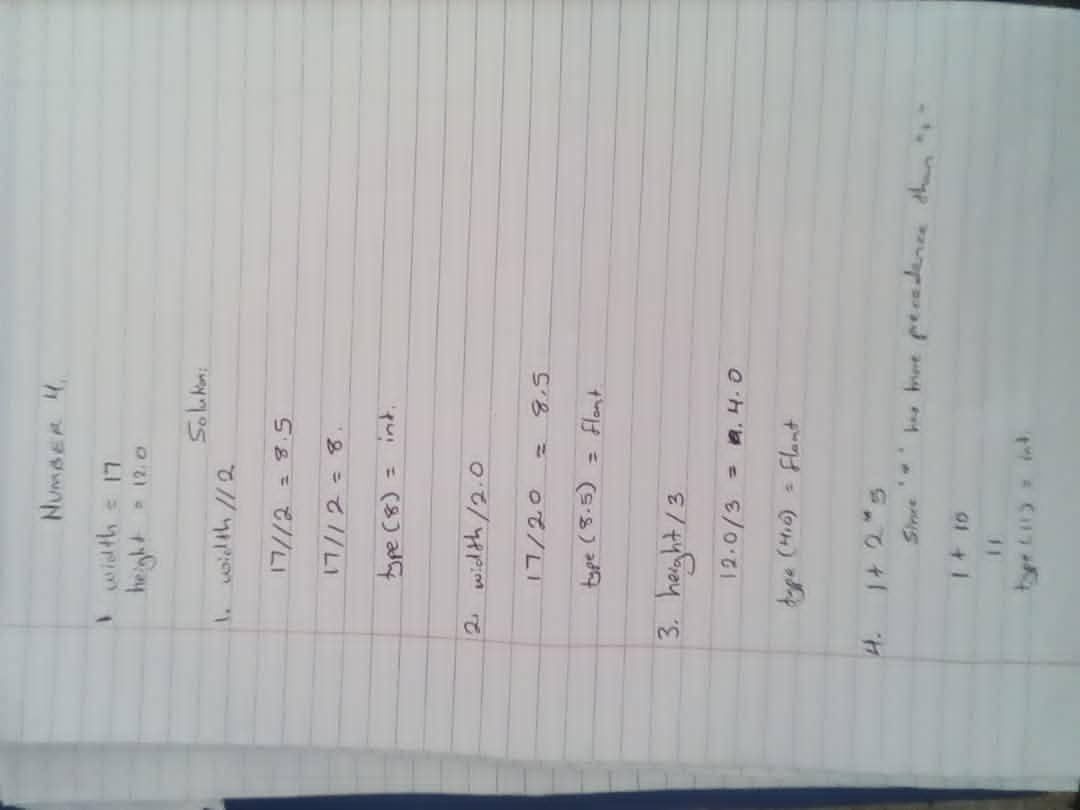 NUMBER 4.
1 width = 17
height = 12.0
Solution:
1. width//2
17//2 = 8.5
17//2 = 8.
type (8) = int.
2. width/2.0
17/2.0 = 8.5
type (8.5) = float
3. height/3
12.0/3 = 4.0
type (4.0) = float
4. 1 + 2 * 5
Since '*' has more precedence than "+"
1 + 10
11
type (11) = int.